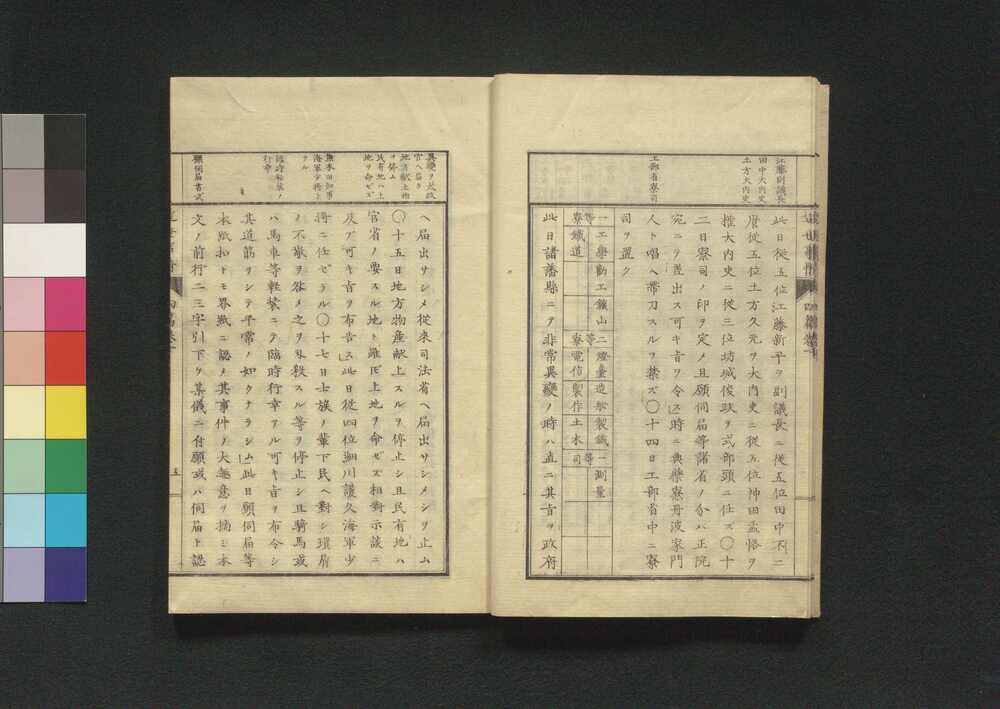 江藤副議長
田中大内史
土方大内史
此日從五位江藤新平ヲ副議長ニ從五位田中不二
麿從五位土方久元ヲ大内史ニ從五位神田孟恪ヲ
權大内史ニ從三位坊城俊政ヲ式部頭ニ任ズ〇十
二日寮司ノ印ヲ定メ且願伺届等諸省ノ分ハ正院
宛ニテ差出ス可キ旨ヲ令ス此時ニ典藥寮丹波家門
人ト唱ヘ帶刀スルヲ禁ズ〇十四日工部省中ニ寮
工部省寮司
司ヲ置ク
一等寮
工學勸工鑛山
鐵道
二等寮
燈臺造船製鐵
電信製作土木
一等司
測量
此日諸藩縣ニテ非常異變ノ時ハ直ニ其旨ヲ政府
異變ヲ太政
官ヘ届ク
地方獻上物
ヲ停ム
民有地ハ上
地ヲ命ゼズ
ヘ届出サシメ從來司法省ヘ届出サシメシヲ止ム
〇十五日地方物産獻上スルヲ停止シ且民有地ハ
官省ノ要スル地ト雖ドモ上地ヲ命ゼズ相對示談ニ
及ブ可キ旨ヲ布告ス此日從四位細川護久海軍少
熊本旧知事
海軍少將ト
ナル
將ニ任ゼラル〇十七日士族ノ輩下民ヘ對シ瑣屑
ノ不敬ヲ咎メ之ヲ斬殺スル等ヲ停止シ且騎馬或
臨時輕裝ノ
行幸
ハ馬車等輕裝ニテ臨時行幸アル可キ旨ヲ布令シ
其道筋ヲシテ平常ノ如クナラシム此日願伺届等
本紙扣トモ界紙ニ認メ其事件ノ大題意ヲ摘ミ本
願伺届書式
文ノ前行二三字引下ヲ某儀ニ付願或ハ伺届ト認
五